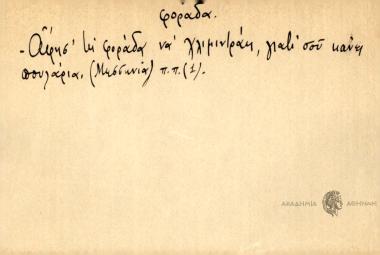 φοράδα.
- Ἄφησ' τὴ φοράδα νὰ χλιμιντράῃ, γιατὶ σοῦ κάνει
πουλάρια. (Μεσσηνία) π.π.(1).
ΑΚΑΔΗΜΙΑ ΑΘΗΝΩΝ